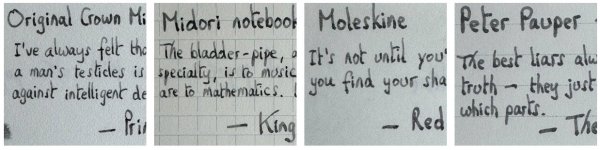 Original Crown Mi
I've always felt tha
a man's testicles is
against intelligent de
— Prin
Midori notebook
The bladder-pipe, a
specialty, is to music
are to mathematics.
— King
Moleskine
It's not until you'
you find your sha
— Red
Peter Pauper
The best liars alw
truth — they just
which parts.
— The